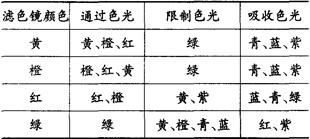 滤色镜颜色 通过色光 限制色光 吸收色光
黄 黄、橙、红 绿 青、蓝、紫
橙 橙、红、黄 绿 青、蓝、紫
红 红、橙 黄、紫 蓝、青、绿
绿 绿 黄、橙、青、蓝 红、紫